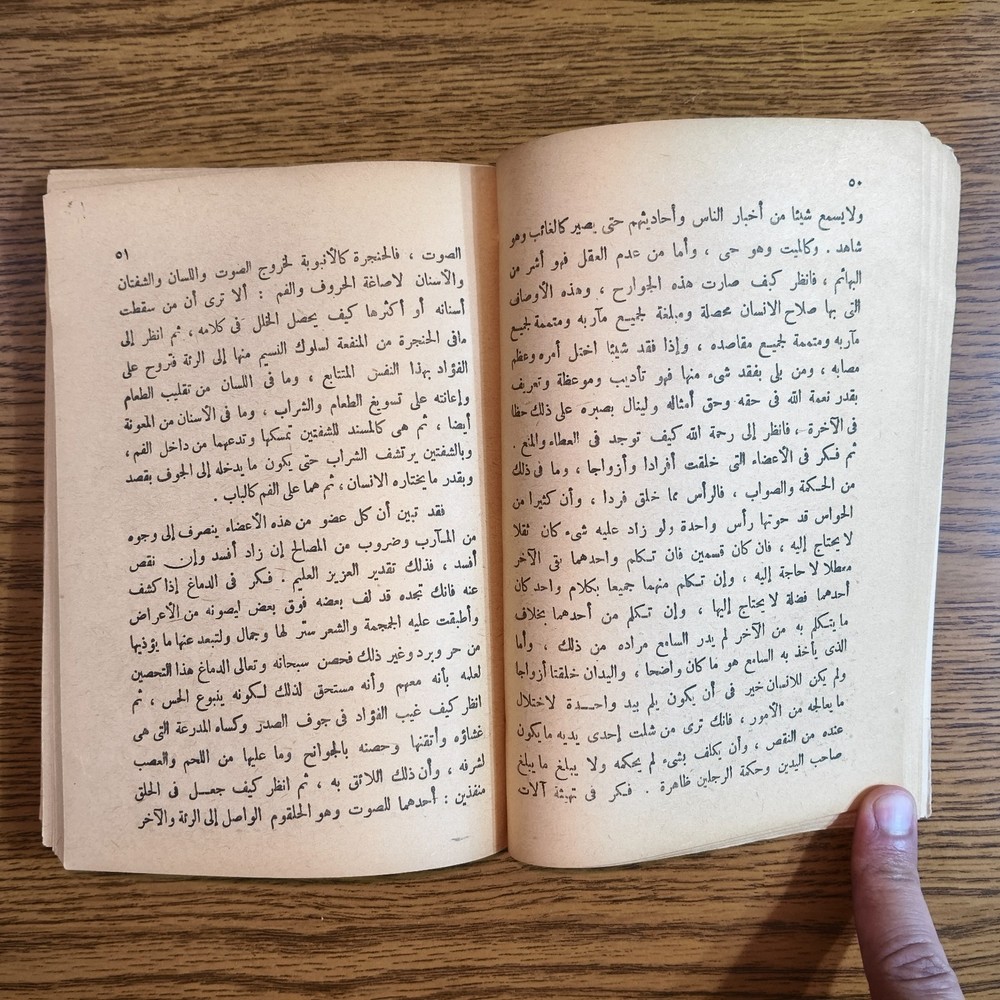 ٥٠
ولا يسمع شيئا من أخبار الناس وأحاديثهم حتى يصير كالغائب وهو
شاهد . وكالميت وهو حى ، وأما من عدم العقل فهو أشر من
البهائم ، فانظر كيف صارت هذه الجوارح ، وهذه الأوصاف
التى بها صلاح الانسان محصلة ومبلغة لجميع مآربه ومتممة لجميع
مآربه ومتممة لجميع مقاصده ، وإذا فقد شيئا اختل أمره وعظم
مصابه ، ومن بلى بفقد شىء منها فهو تأديب وموعظة وتعريف
بقدر نعمة الله فى حقه وحق أمثاله ولينال بصبره على ذلك حظا
فى الآخرة ، فانظر إلى رحمة الله كيف توجد فى العطاء والمنع .
ثم فكر فى الأعضاء التى خلقت أفرادا وأزواجا ، وما فى ذلك
من الحكمة والصواب ، فالرأس مما خلق فردا ، وأن كثيرا من
الحواس قد حوتها رأس واحدة ولو زاد عليه شىء كان ثقلا
لا يحتاج إليه ، فان كان قسمين فان تكلم واحدهما بقى الآخر
معطلا لا حاجة إليه ، وإن تكلم منهما جميعا بكلام واحد كان
أحدهما فضلة لا يحتاج إليها ، وإن تكلم من أحدهما بخلاف
ما يتكلم به من الآخر لم يدر السامع مراده من ذلك ، وأما
الذى يأخذ به السامع هو ما كان واضحا ، واليدان خلقتا أزواجا
ولم يكن للانسان خير فى أن يكون بلم بيد واحدة لاختلال
ما يعالجه من الأمور ، فانك ترى من شلت إحدى يديه ما يكون
عنده من النقص ، وأن يكلف بشىء لم يحكمه ولا يبلغ ما يبلغ
صاحب اليدين وحكمة الرجلين ظاهرة . فكر فى تهيئة آلات
٥١
الصوت ، فالحنجرة كالأنبوبة لخروج الصوت واللسان والشفتان
والأسنان لاصاغة الحروف والفم : ألا ترى أن من سقطت
أسنانه أو أكثرها كيف يحصل الخلل فى كلامه ، ثم انظر إلى
مافى الحنجرة من المنفعة لسلوك النسيم منها إلى الرئة فتروح على
الفؤاد بهذا النفس المتتابع ، وما فى اللسان من تقليب الطعام
وإعانته على تسويغ الطعام والشراب ، وما فى الأسنان من المعونة
أيضا ، ثم هى كالمسند للشفتين تمسكها وتدعهما من داخل الفم ،
وبالشفتين يرتشف الشراب حتى يكون ما يدخله إلى الجوف بقصد
وبقدر ما يختاره الانسان ، ثم هما على الفم كالباب .
فقد تبين أن كل عضو من هذه الأعضاء ينصرف إلى وجوه
من المآرب وضروب من المصالح إن زاد أفسد وإن نقص
أفسد ، فذلك تقدير العزيز العليم . فكر فى الدماغ إذا كشف
عنه فانك تجده قد لف بعضه فوق بعض ليصونه من الأعراض
وأطبقت عليه الجمجمة والشعر ستر لها وجمال ولتبعد عنها ما يؤذيها
من حر وبرد وغير ذلك فحصن سبحانه وتعالى الدماغ هذا التحصين
لعلمه بأنه معهم وأنه مستحق لذلك لكونه ينبوع الحس ، ثم
انظر كيف غيب الفؤاد فى جوف الصدر وكساه المدرعة التى هى
غشاؤه وأتقنها وحصنه بالجوانح وما عليها من اللحم والعصب
لشرفه ، وأن ذلك اللائق به ، ثم انظر كيف جعل فى الحلق
منفذين : أحدهما للصوت وهو الحلقوم الواصل إلى الرئة والآخر